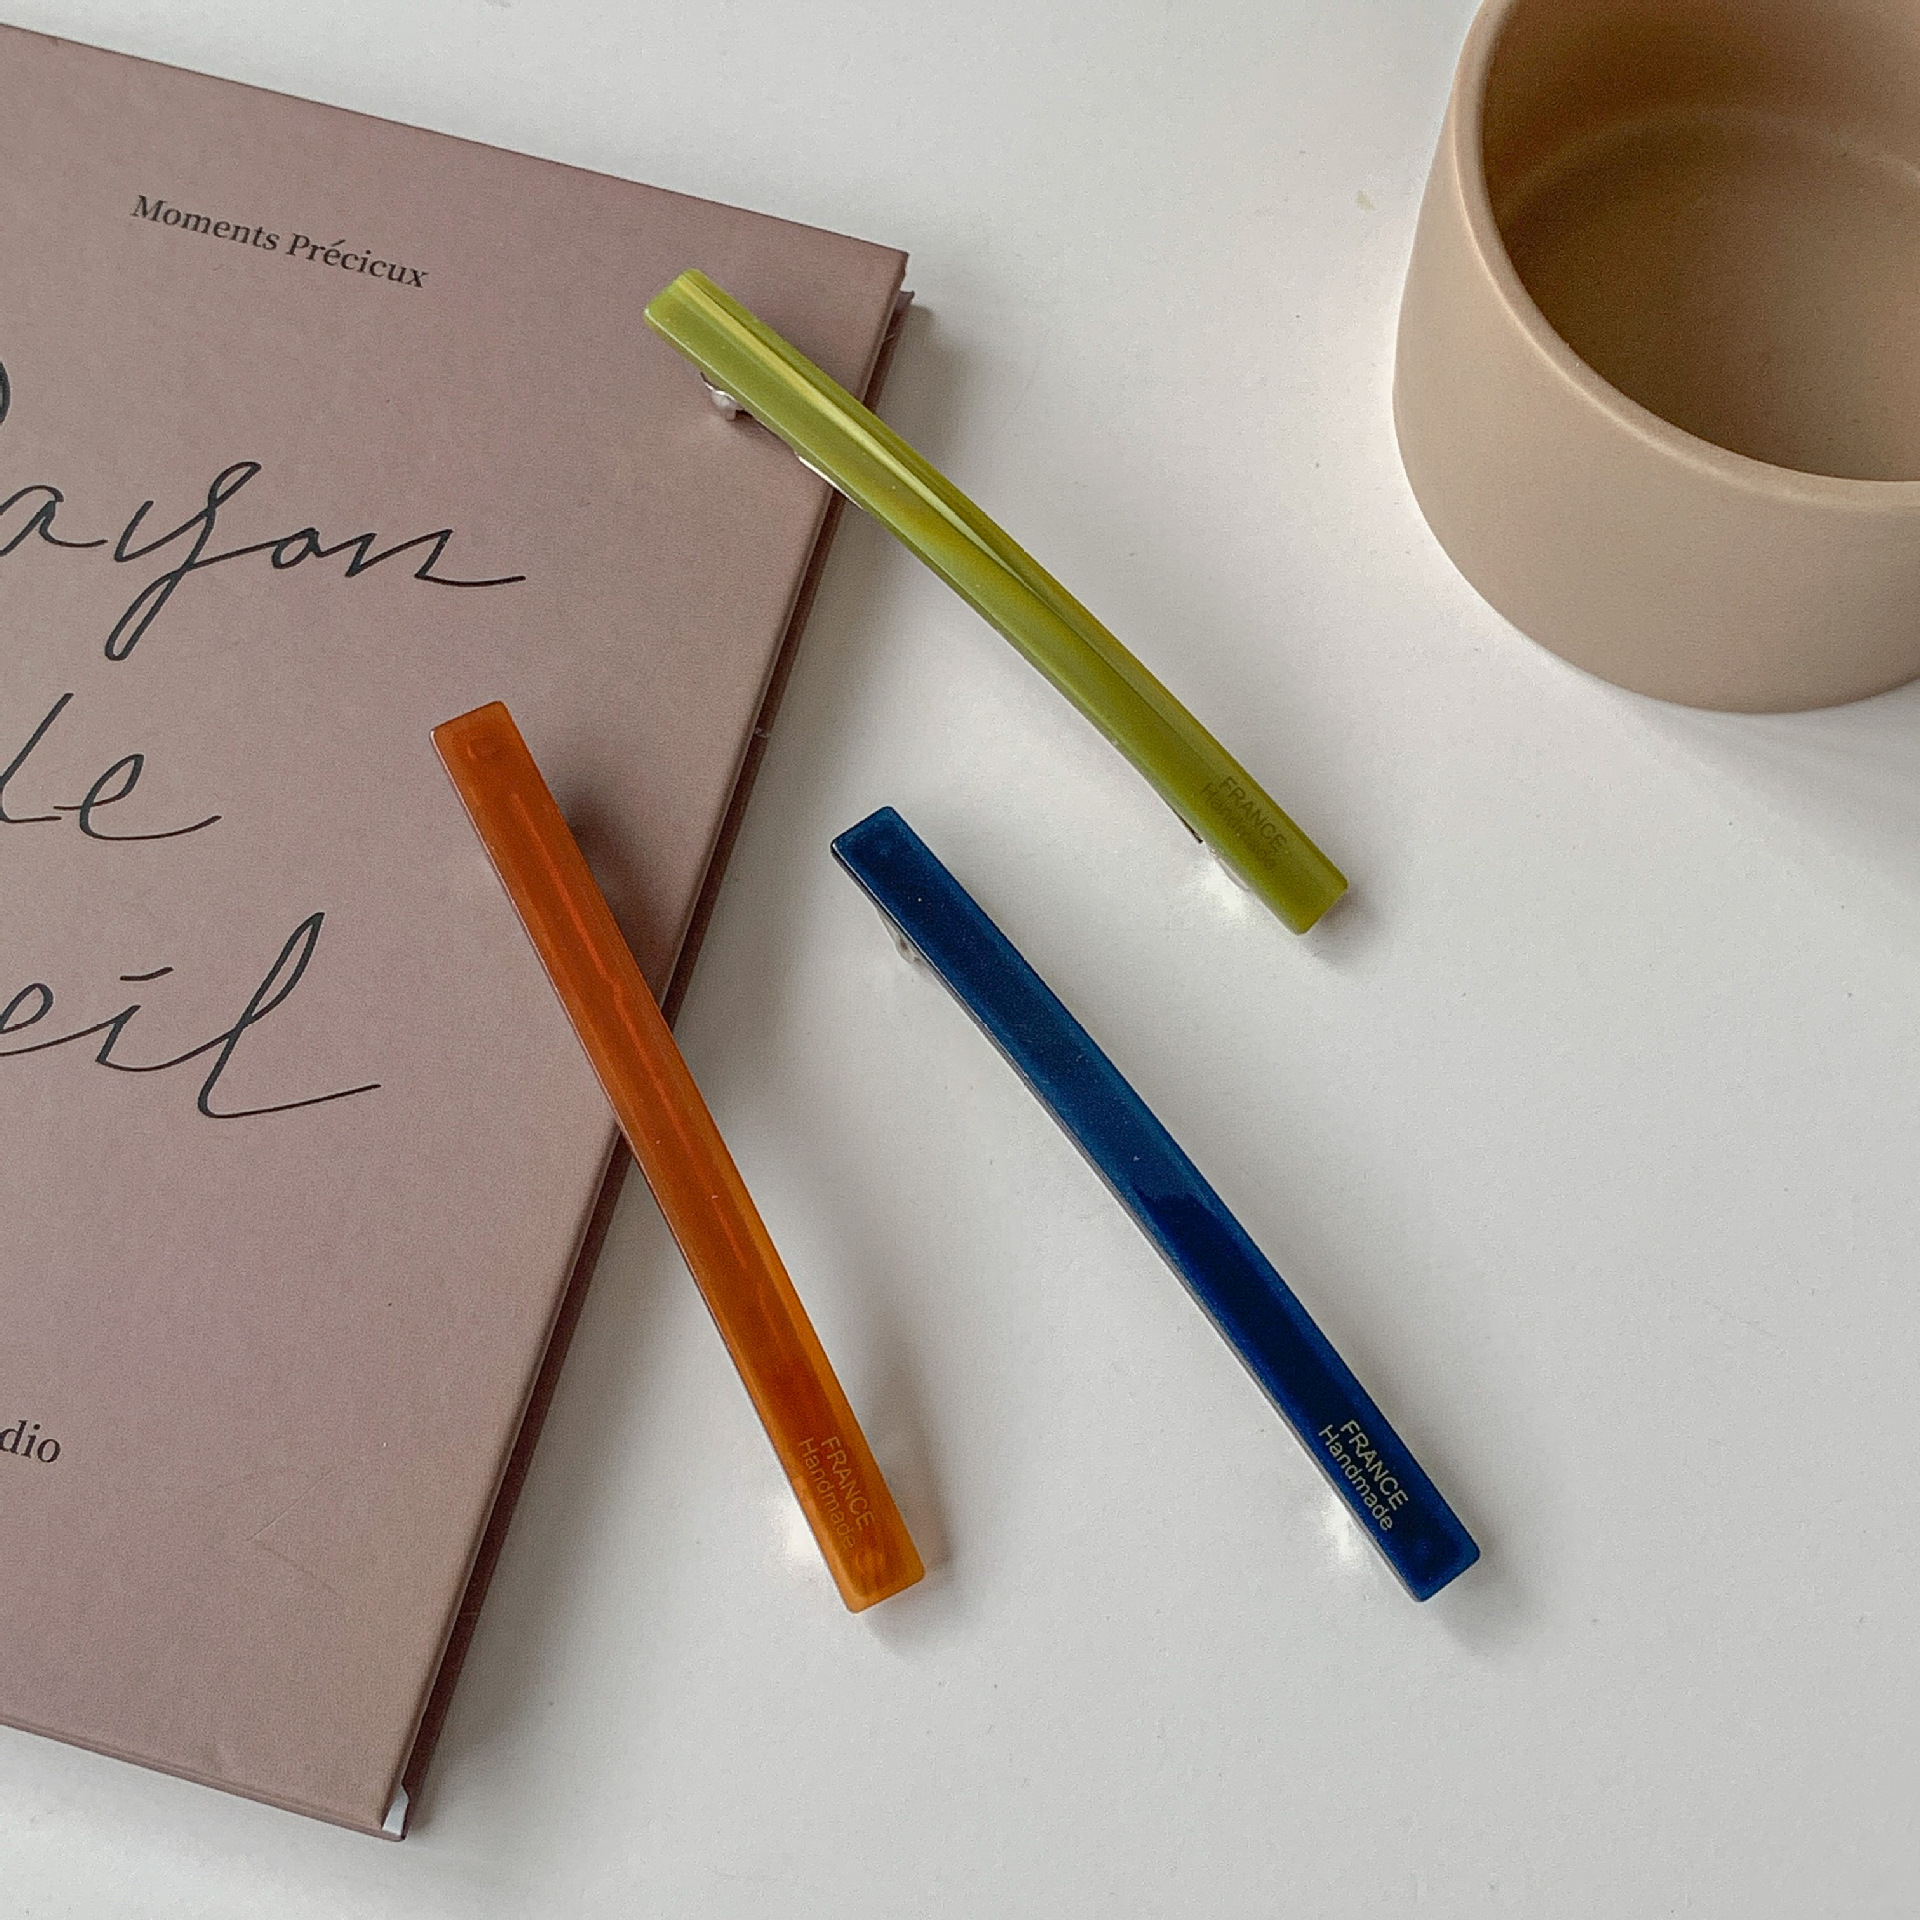 Moments Précicux
ayon
de
eil
dio
FRANCE
Handmade
FRANCE
Handmade
FRANCE
Handmade